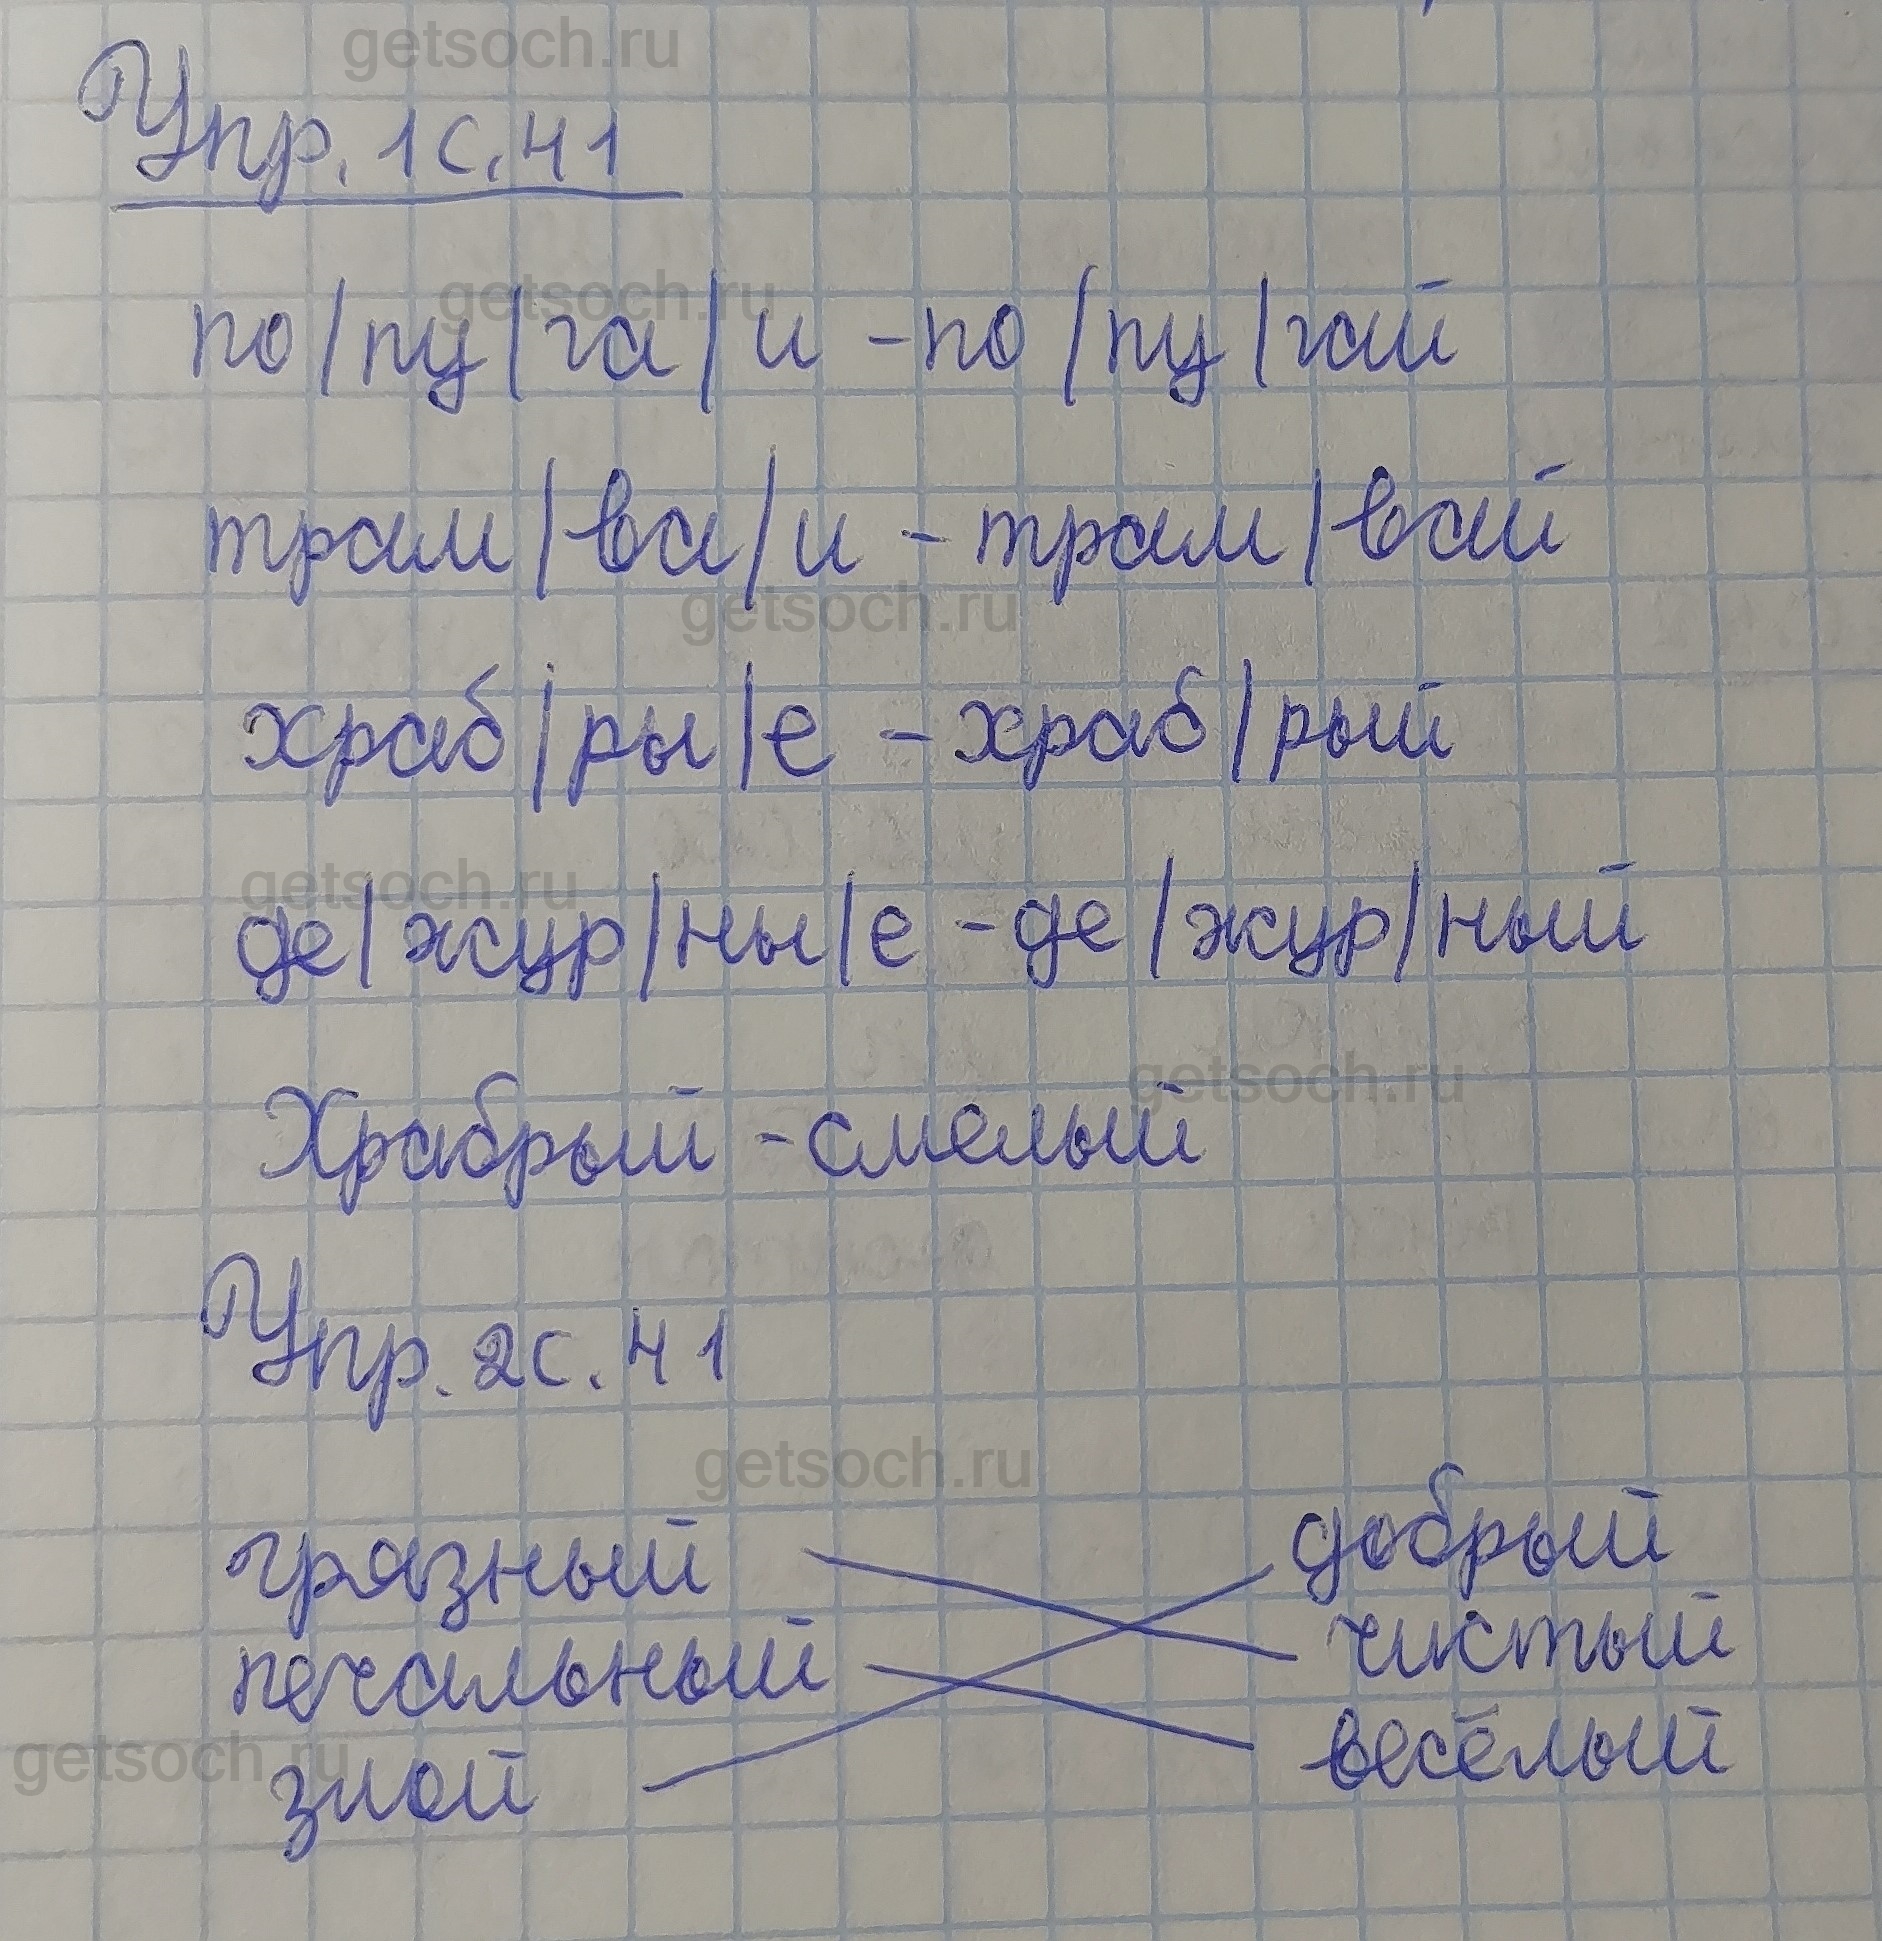 getsoch.ru
Упр. 1 с. 41
getsoch.ru
по/пу/га/и - по/пу/гай
трам/ва/и - трам/вай
getsoch.ru
храб/ры/е - храб/рый
getsoch.ru
де/жур/ны/е - де/жур/ный
getsoch.ru
Храбрый - смелый
Упр. 2 с. 41
getsoch.ru
грязный добрый
печальный чистый
getsoch.ru
злой весёлый